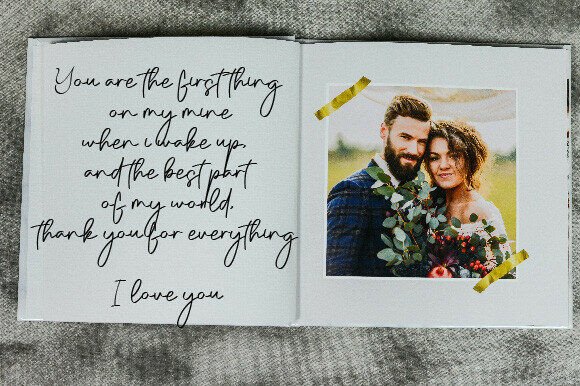 You are the first thing
on my mine
when i wake up.
and the best part
of my world.
thank you for everything
I love you